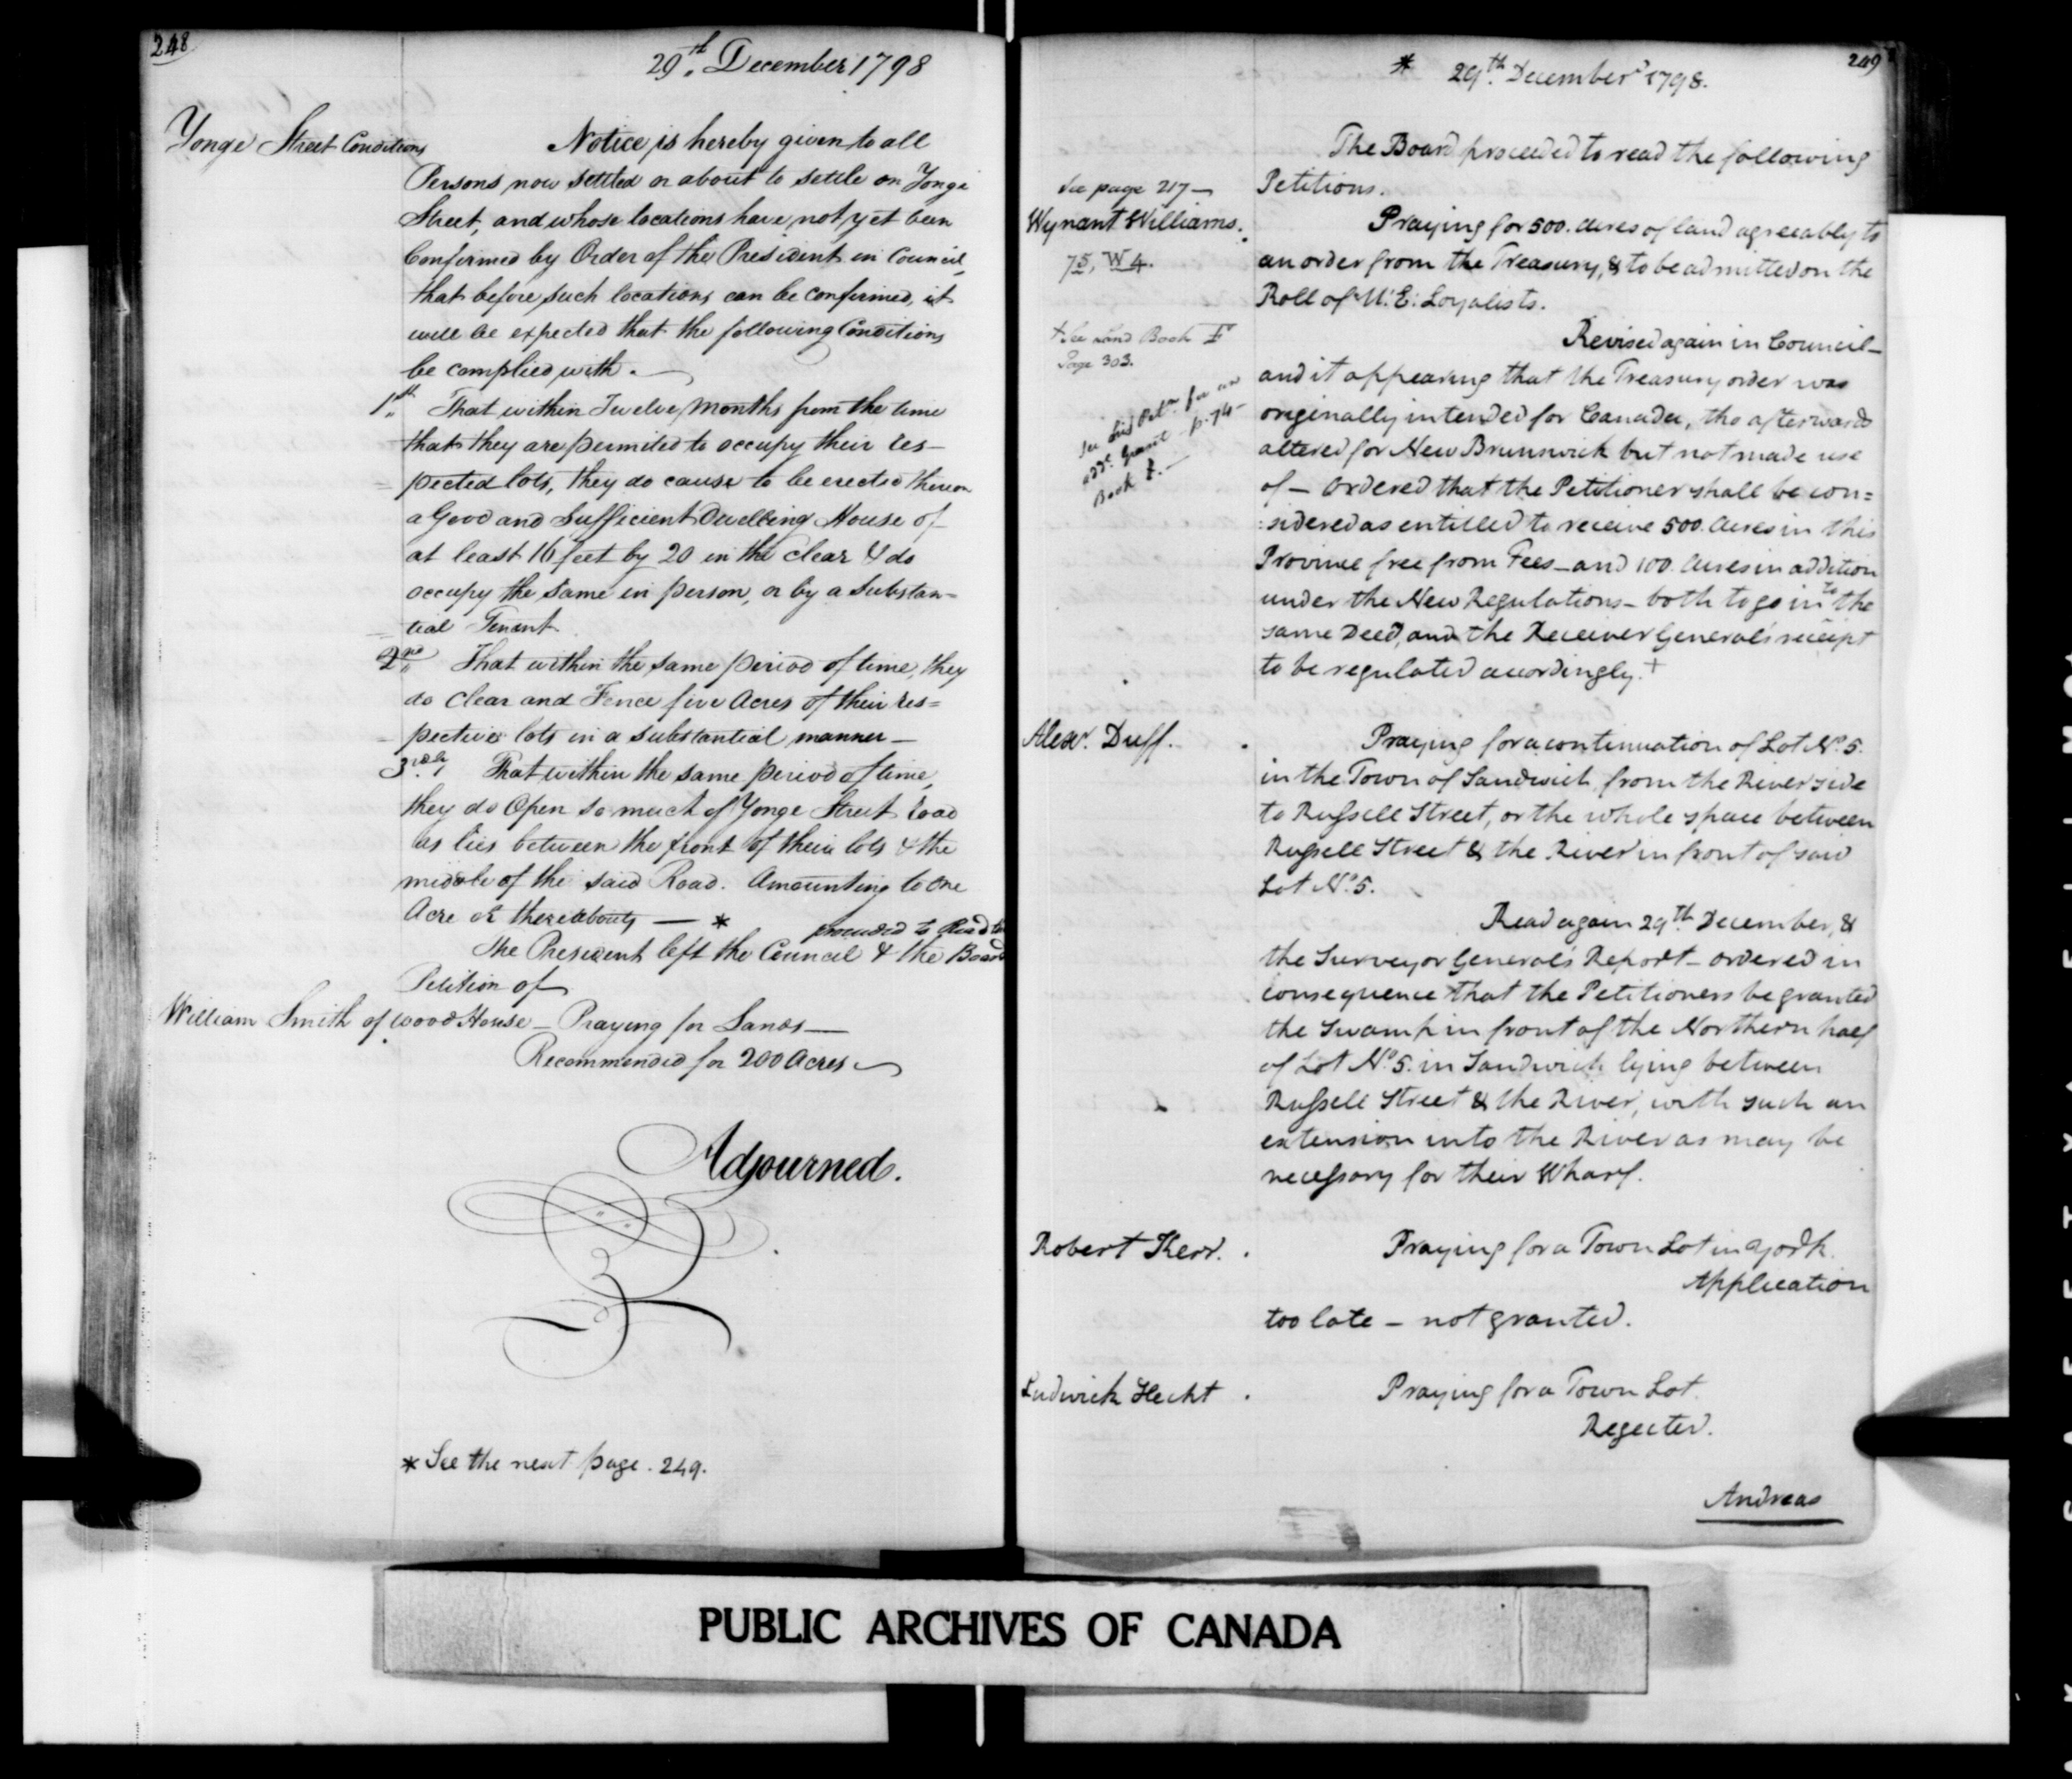 248
29th. December 1798
Yonge Street Conditions
Notice is hereby given to all
Persons now settled or about to settle on Yonge
Street, and whose locations have not yet been
Confirmed by Order of the President in Council,
that before such locations can be confirmed, it
will be expected that the following Conditions
be complied with.
1st. That within Twelve Months from the time
that they are permited to occupy their res-
pected lots, they do cause to be erected thereon
a Good and Sufficient Dwelling House of
at least 16 feet by 20 in the clear & do
occupy the same in person, or by a Substan-
tial Tenant
2nd. That within the same period of time, they
do clear and Fence five Acres of their res=
pective lots in a substantial manner—
3rdly That within the same period of time,
they do Open so much of Yonge Street road
as lies between the front of their lots & the
middle of the said Road. Amounting to one
Acre or thereabouts — *
proceeded to Read the
The President left the Council & the Board
Petition of
William Smith of Wood House — Praying for Lands —
Recommended for 200 Acres
Adjourned.
* See the next page. 249.
249
* 29th. December 1798.
The Board proceeded to read the following
Petitions.
See page 217—
Wynant Williams.
75, W 4.
Praying for 500. acres of land agreeably to
an order from the Treasury, & to be admitted on the
Roll of U: E: Loyalists.
+ See Land Book F
Page 303.
See this Petn. for an
addl. Grant p. 74—
Book
Revised again in Council—
and it appearing that the Treasury order was
originally intended for Canada, tho afterwards
altered for New Brunswick but not made use
of — Ordered that the Petitioner shall be con=
:sidered as entitled to receive 500. Acres in this
Province free from Fees — and 100. Acres in addition
under the New Regulations — both to go into the
same Deed, and the Receiver General's receipt
to be regulated accordingly. +
Alexr. Duff.
Praying for a continuation of Lot No. 5.
in the Town of Sandwich from the River side
to Russell Street, or the whole space between
Russell Street & the River in front of said
Lot No. 5.
Read again 29th. December, &
the Surveyor General's Report — ordered in
consequence that the Petitioners be granted
the Swamp in front of the Northern half
of Lot No. 5. in Sandwich lying between
Russell Street & the River, with such an
extension into the River as may be
necessary for their Wharf.
Robert Kerr.
Praying for a Town Lot in York.
Application
too late — not granted.
Ludwick Hecht
Praying for a Town Lot.
Rejected.
Andreas
PUBLIC ARCHIVES OF CANADA